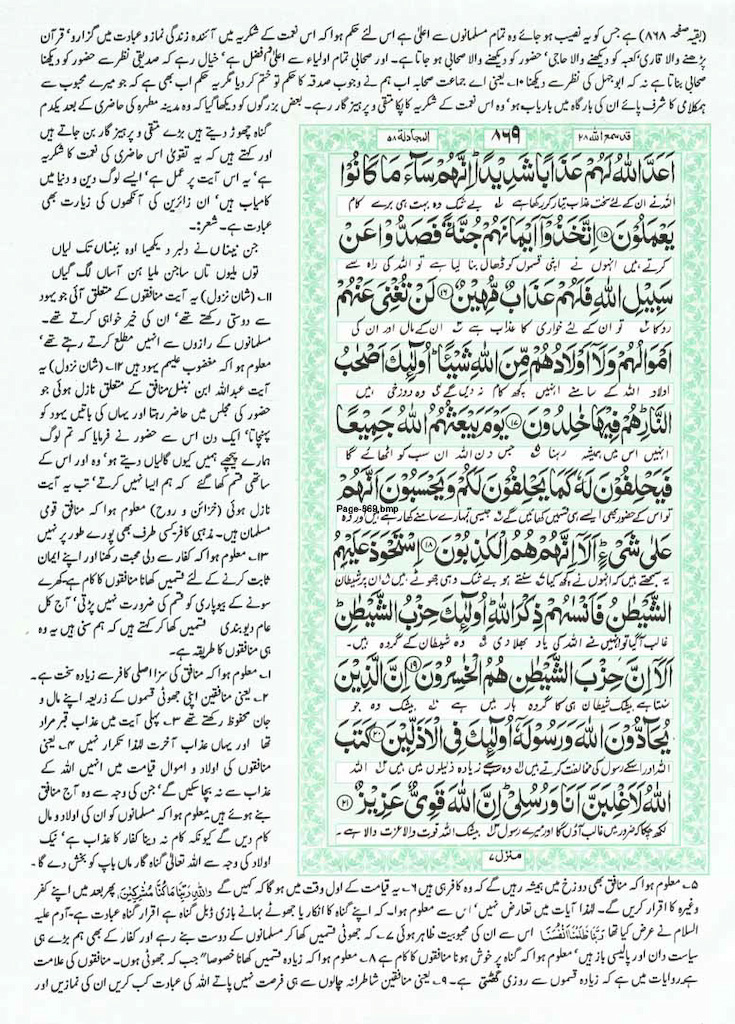 (بقیہ صفحہ ۸۶۸) ہے جس کو یہ نصیب ہو جائے وہ تمام مسلمانوں سے اعلیٰ ہے اس لئے حکم ہوا کہ اس نعمت کے شکریہ میں آئندہ زندگی نماز و عبادت میں گزارو' قرآن
پڑھنے والا قاری' کعبہ کو دیکھنے والا حاجی' حضور کو دیکھنے والا صحابی ہو جاتا ہے۔ اور صحابی تمام اولیاء سے اعلیٰ افضل ہے' خیال رہے کہ صدیقی نظر سے حضور کو دیکھنا
صحابی بناتا ہے نہ کہ ابوجہل کی نظر سے دیکھنا ۱۰۔ یعنی اے جماعت صحابہ اب ہم نے وجوب صدقہ کا حکم تو ختم کر دیا مگر یہ حکم اب بھی ہے کہ جو میرے محبوب سے
ہمکلامی کا شرف پائے ان کی بارگاہ میں باریاب ہو' وہ اس نعمت کے شکریہ کا پکا متقی و پرہیز گار رہے۔ بعض بزرگوں کو دیکھا گیا کہ وہ مدینہ مطہرہ کی حاضری کے بعد یکدم
قد سمع اللہ ۲۸ ۸۶۹ المجادلة ۵۸
اَعَدَّ اللهُ لَهُمْ عَذَابًا شَدِيْدًا ؕ اِنَّهُمْ سَآءَ مَا كَانُوْا
اللہ نے ان کے لئے سخت عذاب تیار کر رکھا ہے بے شک وہ بہت ہی برے کام
يَعْمَلُوْنَ ۝۱۵ اِتَّخَذُوْۤا اَيْمَانَهُمْ جُنَّةً فَصَدُّوْا عَنْ
کرتے ہیں انہوں نے اپنی قسموں کو ڈھال بنا لیا ہے تو اللہ کی راہ سے
سَبِيْلِ اللهِ فَلَهُمْ عَذَابٌ مُّهِيْنٌ ۝۱۶ لَنْ تُغْنِيَ عَنْهُمْ
روکا تو ان کے لئے خواری کا عذاب ہے ان کے مال اور ان کی
اَمْوَالُهُمْ وَلَاۤ اَوْلَادُهُمْ مِّنَ اللهِ شَيْـًٔا ؕ اُولٰٓئِكَ اَصْحٰبُ
اولاد اللہ کے سامنے انہیں کچھ کام نہ دیں گے وہ دوزخی ہیں
النَّارِ ؕ هُمْ فِيْهَا خٰلِدُوْنَ ۝۱۷ يَوْمَ يَبْعَثُهُمُ اللهُ جَمِيْعًا
انہیں اس میں ہمیشہ رہنا جس دن اللہ ان سب کو اٹھائے گا
فَيَحْلِفُوْنَ لَهٗ كَمَا يَحْلِفُوْنَ لَكُمْ وَيَحْسَبُوْنَ اَنَّهُمْ
Page-869.bmp
تو اس کے حضور بھی ایسے ہی قسمیں کھائیں گے جیسی تمہارے سامنے کھا رہے ہیں اور وہ
عَلٰى شَيْءٍ ؕ اَلَاۤ اِنَّهُمْ هُمُ الْكٰذِبُوْنَ ۝۱۸ اِسْتَحْوَذَ عَلَيْهِمُ
یہ سمجھتے ہیں کہ انہوں نے کچھ کیا سنتے ہو بے شک وہی جھوٹے ہیں ان پر شیطان
الشَّيْطٰنُ فَاَنْسٰىهُمْ ذِكْرَ اللهِ ؕ اُولٰٓئِكَ حِزْبُ الشَّيْطٰنِ ؕ
غالب آگیا تو انہیں نے اللہ کی یاد بھلا دی وہ شیطان کے گروہ ہیں۔
اَلَاۤ اِنَّ حِزْبَ الشَّيْطٰنِ هُمُ الْخٰسِرُوْنَ ۝۱۹ اِنَّ الَّذِيْنَ
سنتا ہے بیشک شیطان ہی کا گروہ ہار میں ہے بیشک وہ جو
يُحَآدُّوْنَ اللهَ وَرَسُوْلَهٗۤ اُولٰٓئِكَ فِي الْاَذَلِّيْنَ ۝۲۰ كَتَبَ
اللہ اور اسکے رسول کی مخالفت کرتے ہیں وہ سب سے زیادہ ذلیلوں میں ہیں اللہ
اللهُ لَاَغْلِبَنَّ اَنَا وَرُسُلِيْ ؕ اِنَّ اللهَ قَوِيٌّ عَزِيْزٌ ۝۲۱
لکھ چکا کہ ضرور میں غالب آؤں گا اور میرے رسول بیشک اللہ قوت والا عزت والا ہے۔
منزل ۷
گناہ چھوڑ دیتے ہیں بڑے متقی و پرہیز گار بن جاتے ہیں
اور کہتے ہیں کہ یہ تقویٰ اس حاضری کی نعمت کا شکریہ
ہے' یہ اس آیت پر عمل ہے' ایسے لوگ دین و دنیا میں
کامیاب ہیں' ان زائرین کی آنکھوں کی زیارت بھی
عبادت ہے۔ شعر:۔
جن نیناں نے دلبر دیکھیا اوہ نیناں تک لیاں
توں ملیوں تاں ساجن ملیا ہن آساں لگ گیاں
۱۱۔ (شان نزول) یہ آیت منافقوں کے متعلق آئی جو یہود
سے دوستی رکھتے تھے' ان کی خیر خواہی کرتے تھے۔
مسلمانوں کے رازوں سے انہیں مطلع کرتے رہتے تھے'
معلوم ہوا کہ مغضوب علیہم یہود ہیں ۱۲۔ (شان نزول) یہ
آیت عبداللہ ابن نبتل منافق کے متعلق نازل ہوئی جو
حضور کی مجلس میں حاضر رہتا اور یہاں کی باتیں یہود کو
پہنچاتا' ایک دن اس سے حضور نے فرمایا کہ تم لوگ
ہمارے پیچھے ہمیں کیوں گالیاں دیتے ہو' وہ اور اس کے
ساتھی قسم کھا گئے کہ ہم ایسا نہیں کرتے' تب یہ آیت
نازل ہوئی (خزائن و روح) معلوم ہوا کہ منافق قومی
مسلمان ہیں۔ مذہبی کافر کسی طرف بھی پورے طور پر نہیں
۱۳۔ معلوم ہوا کہ کفار سے دلی محبت رکھنا اور اپنے ایمان
ثابت کرنے کے لئے قسمیں کھانا منافقوں کا کام ہے کھرے
سونے کے بیوپاری کو قسم کی ضرورت نہیں پڑتی' آج کل
عام دیوبندی قسمیں کھا کر کہتے ہیں کہ ہم سنی ہیں یہ وہ
ہی منافقوں کا طریقہ ہے۔
۱۔ معلوم ہوا کہ منافق کی سزا اصلی کافر سے زیادہ سخت ہے۔
۲۔ یعنی منافقین اپنی جھوٹی قسموں کے ذریعہ اپنے مال و
جان محفوظ رکھتے تھے ۳۔ پہلی آیت میں عذاب قبر مراد
تھا اور یہاں عذاب آخرت لہٰذا تکرار نہیں ۴۔ یعنی
منافقوں کی اولاد و اموال قیامت میں انہیں اللہ کے
عذاب سے نہ بچا سکیں گے' جن کی وجہ سے وہ آج منافق
بنے ہوئے ہیں معلوم ہوا کہ مسلمانوں کو ان کی اولاد و مال
کام دیں گے کیونکہ کام نہ دینا کفار کا عذاب ہے' نیک
اولاد کی وجہ سے اللہ تعالیٰ گناہ گار ماں باپ کو بخش دے گا۔
۵۔ معلوم ہوا کہ منافق بھی دوزخ میں ہمیشہ رہیں گے کہ وہ کافر ہی ہیں ۶۔ یہ قیامت کے اول وقت میں ہو گا کہ کہیں گے وَاللّٰهِ رَبِّنَا مَا كُنَّا مُشْرِكِيْنَ پھر بعد میں اپنے کفر
وغیرہ کا اقرار کریں گے۔ لہٰذا آیات میں تعارض نہیں' اس سے معلوم ہوا۔ کہ اپنے گناہ کا انکار یا جھوٹے بہانے بازی ڈبل گناہ ہے اقرار گناہ عبادت ہے۔ آدم علیہ
السلام نے عرض کیا تھا رَبَّنَا ظَلَمْنَا اَنْفُسَنَا اس سے ان کی محبوبیت ظاہر ہوئی ۷۔ کہ جھوٹی قسمیں کھا کر مسلمانوں کے دوست بنے رہے اور کفار کے بھی ہم بڑے ہی
سیاست دان اور پالیسی باز ہیں' معلوم ہوا کہ گناہ پر خوش ہونا منافقوں کا کام ہے ۸۔ معلوم ہوا کہ زیادہ قسمیں کھانا خصوصا" جب کہ جھوٹی ہوں۔ منافقوں کی علامت
ہے روایات میں ہے کہ زیادہ قسموں سے روزی گھٹتی ہے۔ ۹۔ یعنی منافقین شاطرانہ چالوں سے ہی فرصت نہیں پاتے اللہ کی عبادت کب کریں ان کی نمازیں اور